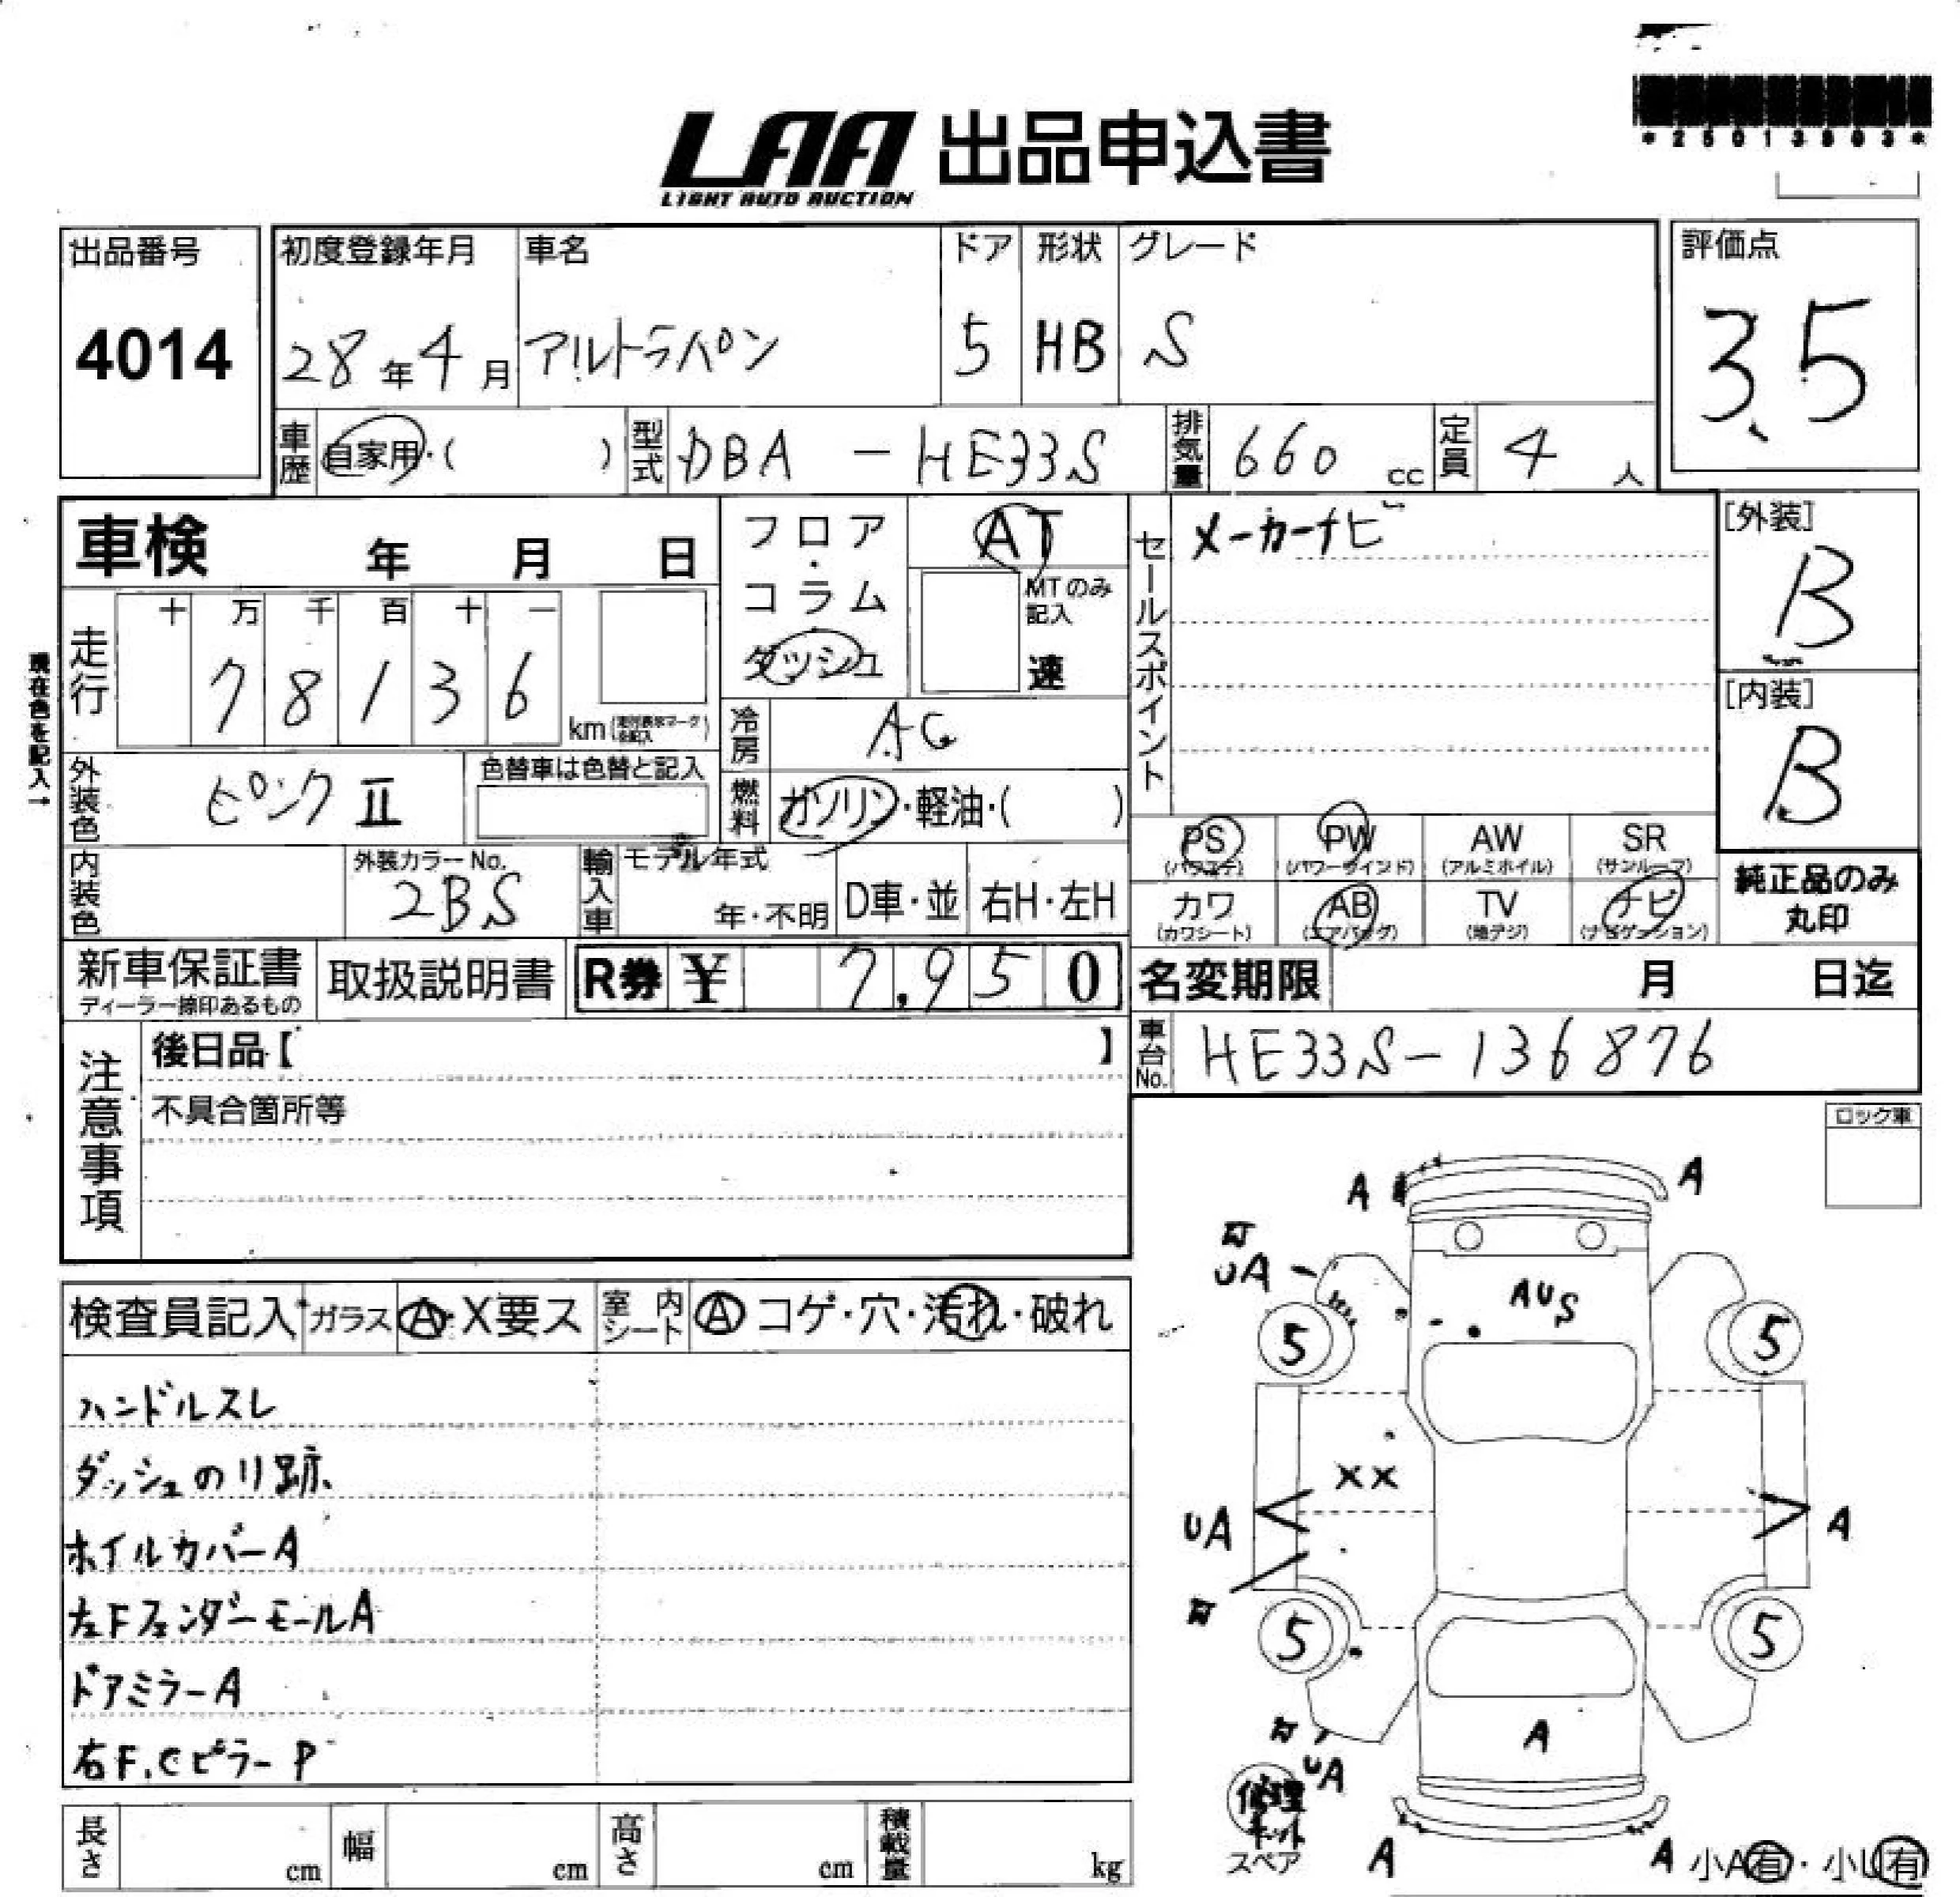 *25013903*
LAA 出品申込書
LIGHT AUTO AUCTION
出品番号
4014
初度登録年月
28年4月
車名
アルトラパン
ドア
5
形状
HB
グレード
S
評価点
3.5
車歴
自家用・( )
型式
DBA - HE33S
排気量
660 cc
定員
4 人
車検 年 月 日
フロア・コラム
ダッシュ
AT
MTのみ記入
速
セールスポイント
メーカーナビ
[外装]
B
[内装]
B
現在色を記入→
走行
十 万 千 百 十 一
7 8 1 3 6
km
冷房
AC
燃料
ガソリン・軽油・( )
外装色
ピンクⅡ
色替車は色替と記入
内装色
外装カラーNo.
2BS
輸入車
モデル年式
年・不明
D車・並
右H・左H
PS
PW
(パワーウインド)
AW
(アルミホイル)
SR
(サンルーフ)
カワ
(カワシート)
AB
(エアバッグ)
TV
(地デジ)
ナビ
(ナビゲーション)
純正品のみ
丸印
新車保証書
ディーラー捺印あるもの
取扱説明書
R券 ¥ 7,950
名変期限 月 日迄
注意事項
後日品【 】
不具合箇所等
車台No.
HE33S-136876
ロック車
検査員記入
ガラス A・X要ス
室内シート A コゲ・穴・汚れ・破れ
ハンドルスレ
ダッシュのリ跡
ホイルカバーA
左Fフェンダーモール A
ドアミラーA
右F.Cピラー P
A
A
UA
AUS
5
5
XX
UA
A
5
5
A
UA
修理キット
スペア
A
A
小A有・小U有
長さ cm
幅 cm
高さ cm
積載量 kg